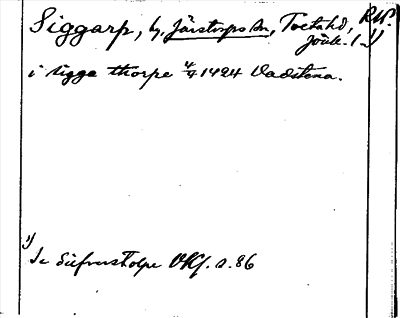 Siggarp, by, Järstorps sn, Tveta hd, RAP.
Jönk. l. 1)
i sigga thorpe 4/9 1424 Vadstena.
1) Se Siefrustolpe DKf. s. 86